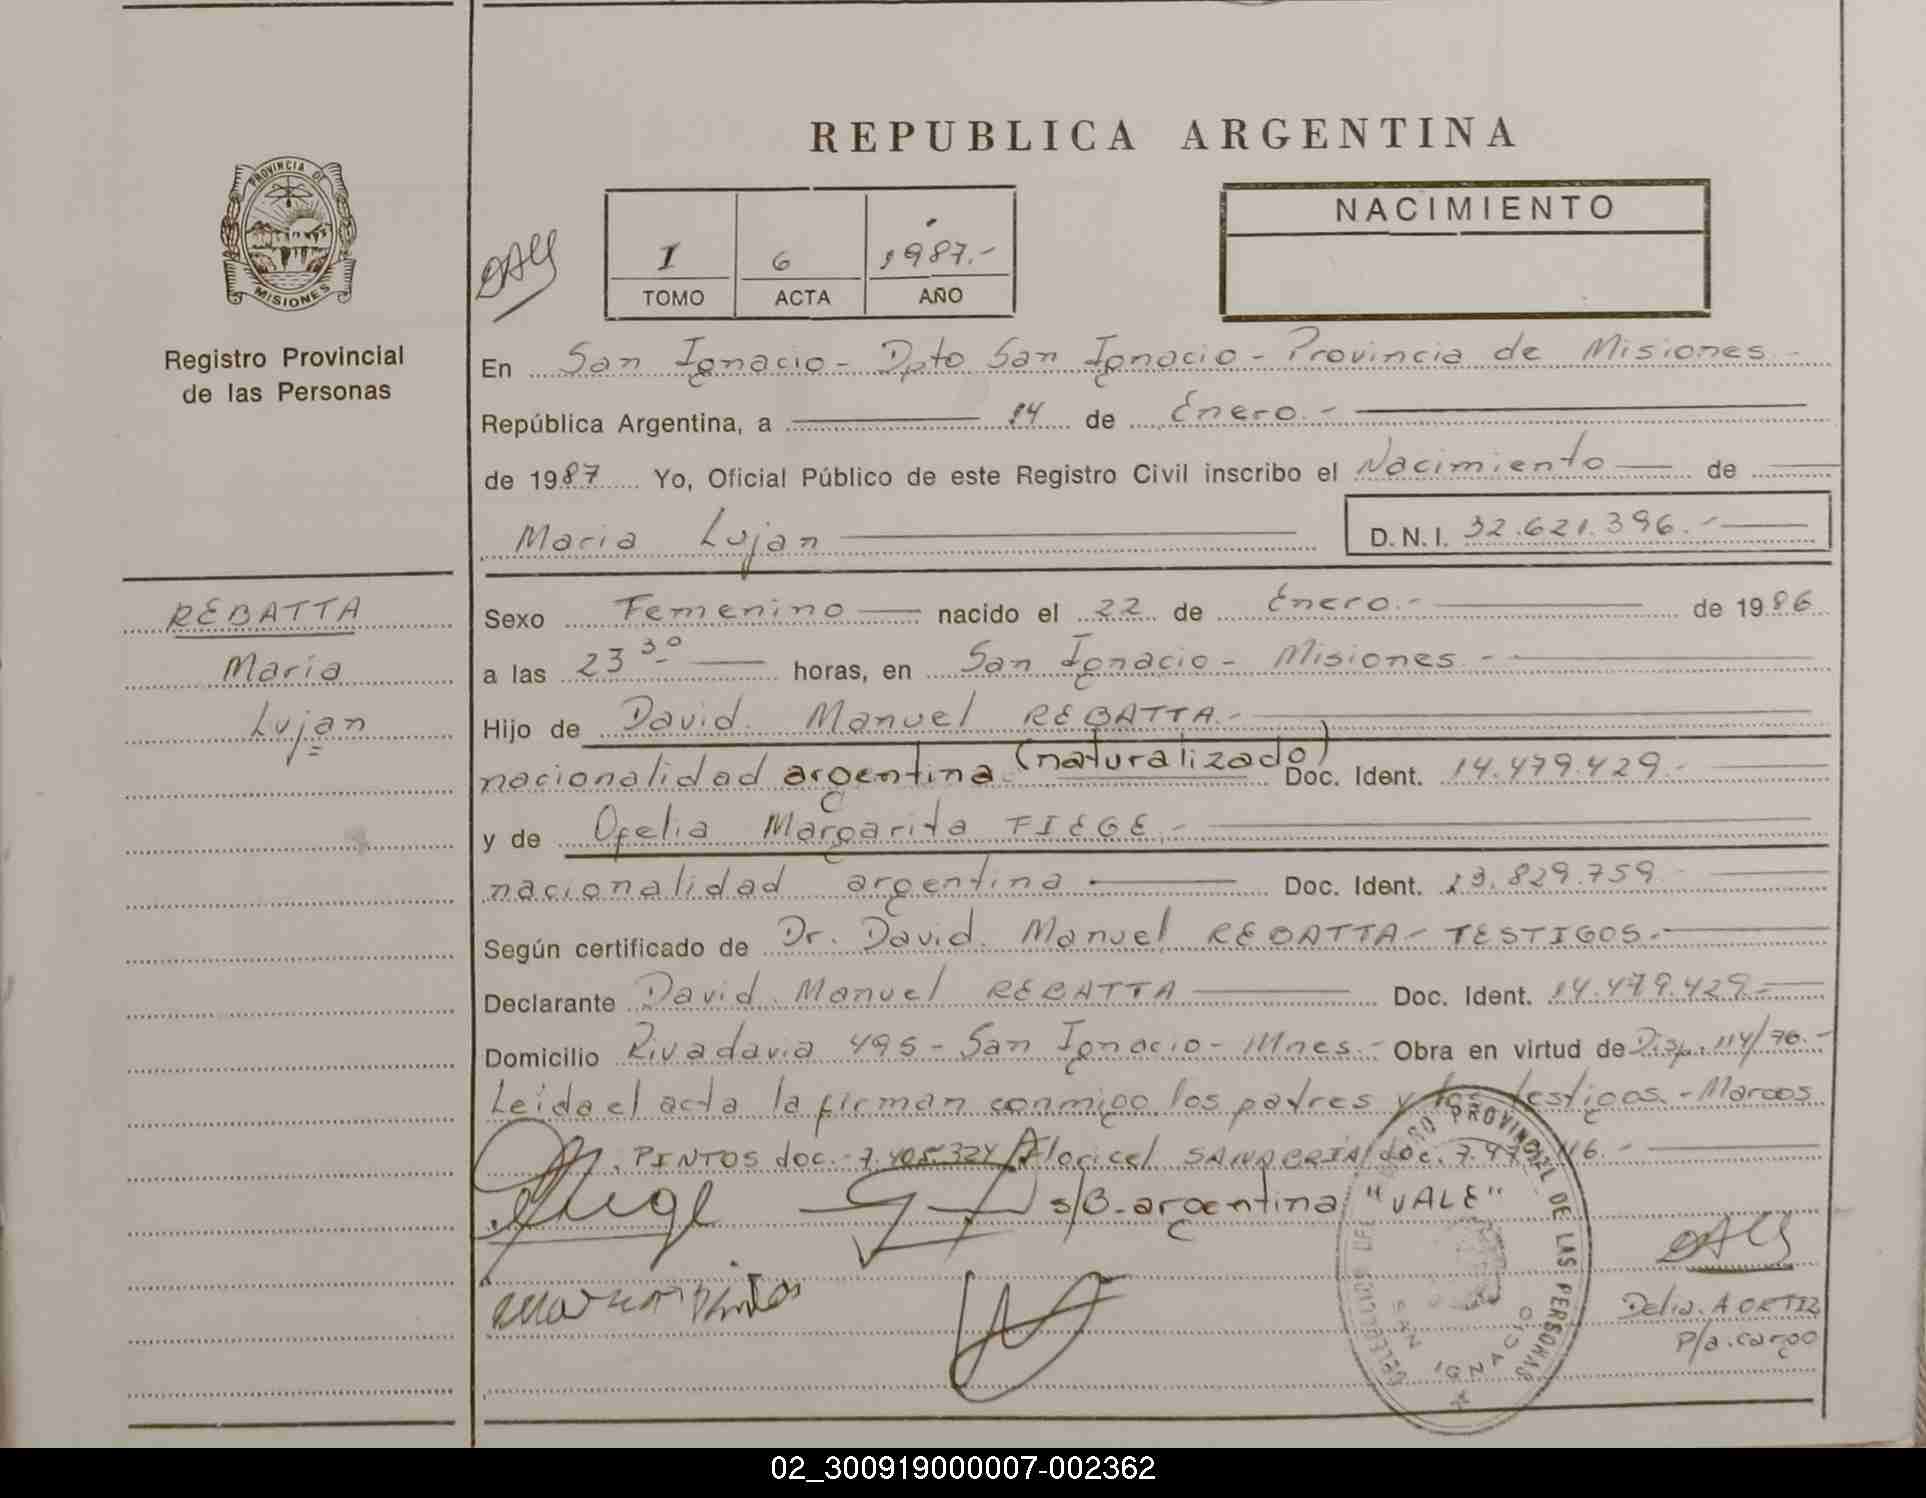 REPUBLICA ARGENTINA
PROVINCIA DE
MISIONES
Registro Provincial
de las Personas
I 6 1987.-
TOMO ACTA AÑO
NACIMIENTO
En San Ignacio - Dpto San Ignacio - Provincia de Misiones -
República Argentina, a 14 de Enero.-
de 1987 Yo, Oficial Público de este Registro Civil inscribo el Nacimiento de
Maria Lujan
D.N.I. 32.621.396.-
REBATTA
Maria
Lujan
Sexo Femenino nacido el 22 de Enero.- de 1986
a las 23 30 horas, en San Ignacio - Misiones.-
Hijo de David Manuel REBATTA.-
nacionalidad argentina (naturalizado) Doc. Ident. 14.479.429.-
y de Ofelia Margarita FIEGE.-
nacionalidad argentina Doc. Ident. 13.829.759.-
Según certificado de Dr. David Manuel REBATTA - TESTIGOS.-
Declarante David Manuel REBATTA Doc. Ident. 14.479.429.-
Domicilio Rivadavia 495 - San Ignacio - Mnes.- Obra en virtud de Disp. 114/76.-
Leida el acta la firman conmigo los padres y los testigos.- Marcos
PINTOS doc.- 7.405.324 Floricel SANABRIA doc. 7.97 116.-
s/B. argentina "VALE"
Marcos Pintos
REGISTRO PROVINCIAL DE LAS PERSONAS
SAN IGNACIO
Delia. A ORTIZ
P/a. cargo
02_300919000007-002362